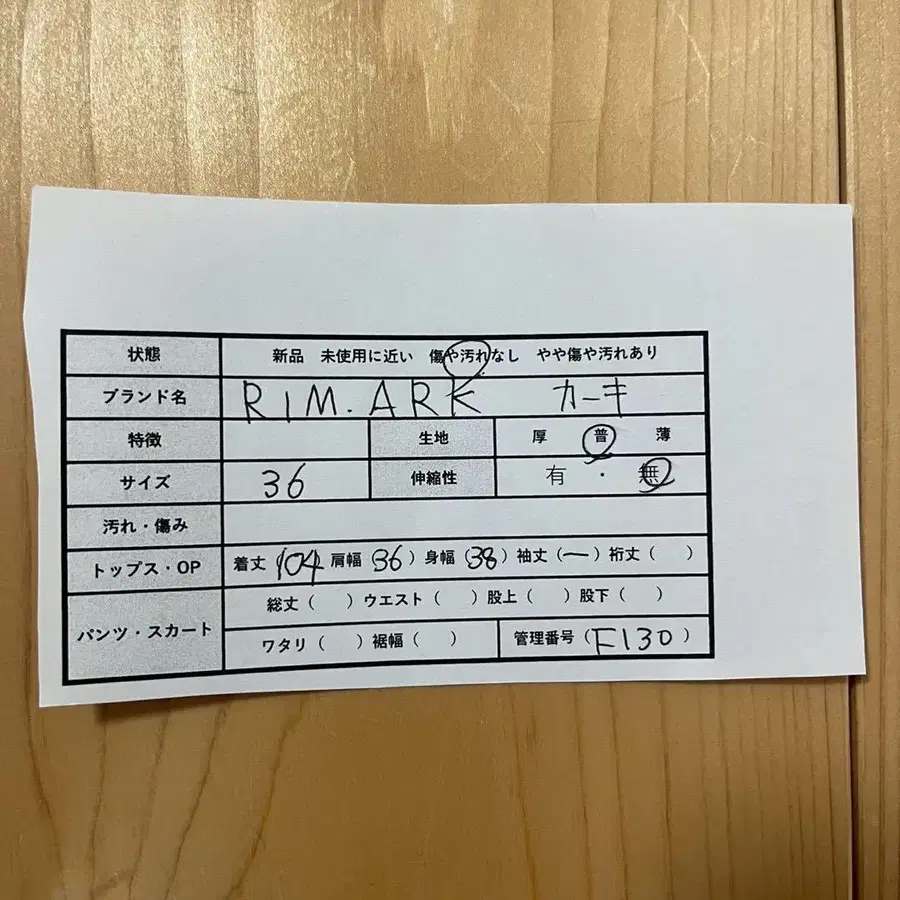 状態 新品 未使用に近い 傷や汚れなし やや傷や汚れあり
ブランド名 RIM.ARK カーキ
特徴 生地 厚 普 薄
サイズ 36 伸縮性 有・無
汚れ・傷み
トップス・OP 着丈 104 肩幅 36) 身幅(38) 袖丈(ー) 裄丈( )
パンツ・スカート 総丈( ) ウエスト( ) 股上( ) 股下( )
ワタリ( ) 裾幅( ) 管理番号(F130)